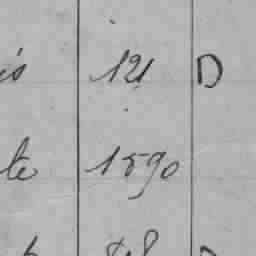 is 121 D
te 1590